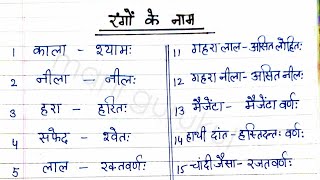 रंगों के नाम
1 काला - श्यामः
2 नीला - नीलः
3 हरा - हरितः
4 सफेद - श्वेतः
5 लाल - रक्तवर्णः
11 गहरा लाल - असित लोहितः
12 गहरा नीला - असित नीलः
13 मैजेंटा - मैजेंटा वर्णः
14 हाथी दांत - हस्तिदन्तः वर्णः
15 चांदी जैसा - रजतवर्णः